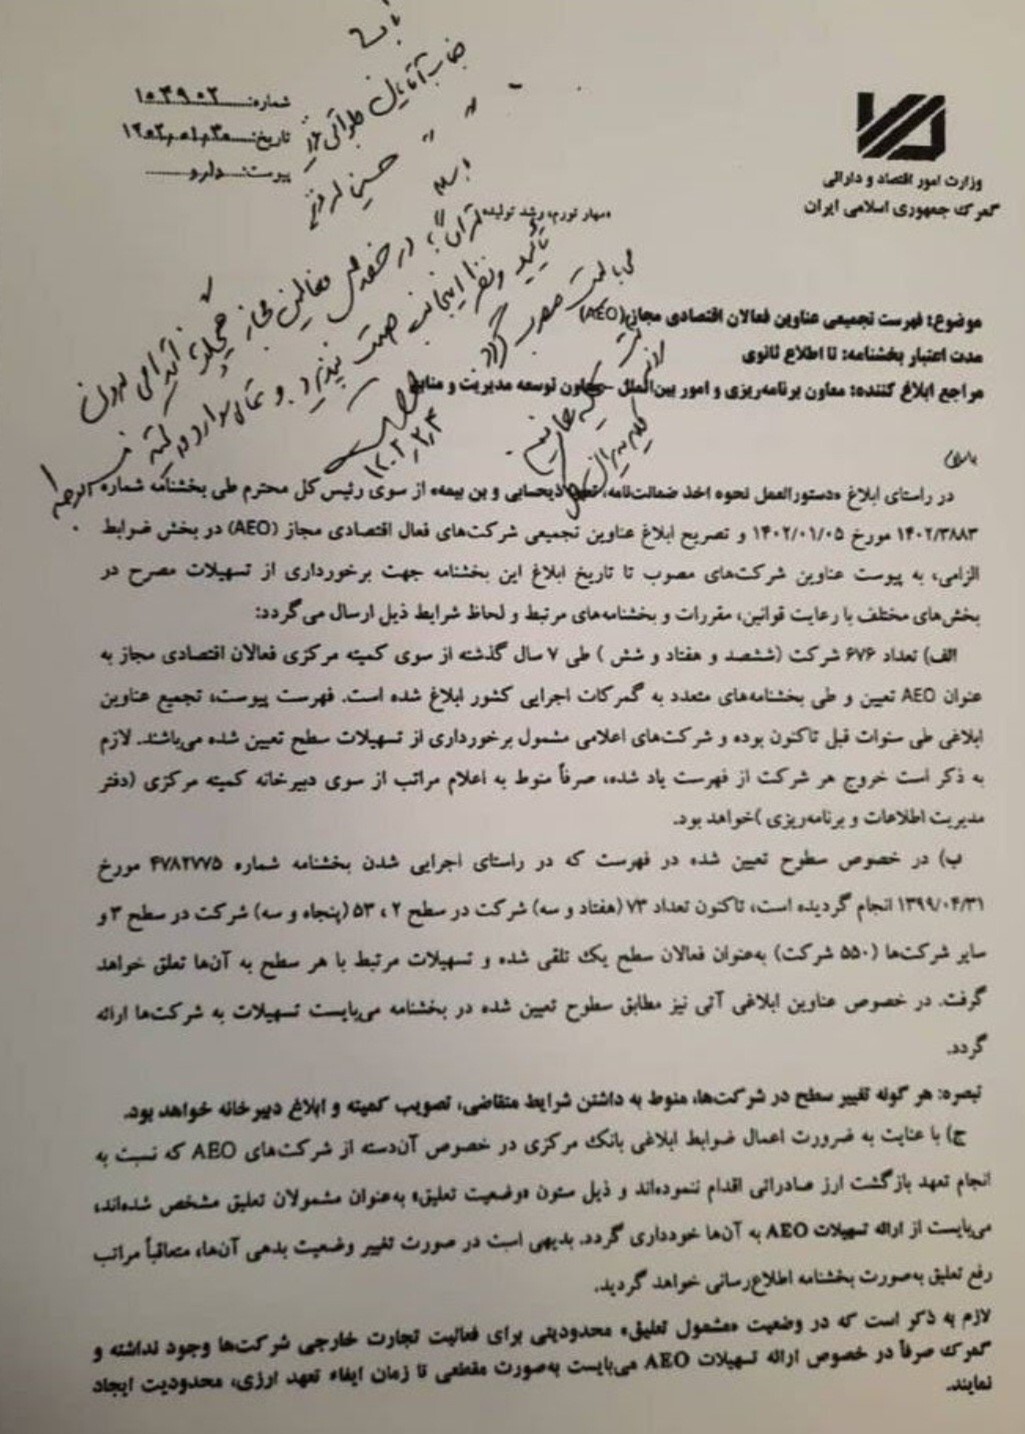 شماره: ۱۰۳۹۰۲
تاریخ: ۱۴۰۲،۰۱،۳۰
پیوست: دارد
وزارت امور اقتصاد و دارائی
گمرک جمهوری اسلامی ایران
«مهار تورم، رشد تولید»
موضوع: فهرست تجمیعی عناوین فعالان اقتصادی مجاز (AEO)
مدت اعتبار بخشنامه: تا اطلاع ثانوی
مراجع ابلاغ کننده: معاون برنامه‌ریزی و امور بین‌الملل – معاون توسعه مدیریت و منابع
۱۴۰۲،۲،۳
در راستای ابلاغ «دستورالعمل نحوه اخذ ضمانت‌نامه، تعهد ذیحسابی و بن بیمه» از سوی رئیس کل محترم طی بخشنامه شماره
۱۴۰۲/۳۸۸۳ مورخ ۱۴۰۲/۰۱/۰۵ و تصریح ابلاغ عناوین تجمیعی شرکت‌های فعال اقتصادی مجاز (AEO) در بخش ضرابط
الزامی، به پیوست عناوین شرکت‌های مصوب تا تاریخ ابلاغ این بخشنامه جهت برخورداری از تسهیلات مصرح در
بخش‌های مختلف با رعایت قوانین، مقررات و بخشنامه‌های مرتبط و لحاظ شرایط ذیل ارسال می‌گردد:
الف) تعداد ۶۷۶ شرکت (ششصد و هفتاد و شش ) طی ۷ سال گذشته از سوی کمیته مرکزی فعالان اقتصادی مجاز به
عنوان AEO تعیین و طی بخشنامه‌های متعدد به گمرکات اجرایی کشور ابلاغ شده است. فهرست پیوست، تجمیع عناوین
ابلاغی طی سنوات قبل تاکنون بوده و شرکت‌های اعلامی مشمول برخورداری از تسهیلات سطح تعیین شده می‌باشند. لازم
به ذکر است خروج هر شرکت از فهرست یاد شده، صرفاً منوط به اعلام مراتب از سوی دبیرخانه کمیته مرکزی (دفتر
مدیریت اطلاعات و برنامه‌ریزی )خواهد بود.
ب) در خصوص سطوح تعیین شده در فهرست که در راستای اجرایی شدن بخشنامه شماره ۴۷۸۲۷۷۵ مورخ
۱۳۹۹/۰۴/۳۱ انجام گردیده است، تاکنون تعداد ۷۳ (هفتاد و سه) شرکت در سطح ۲ ، ۵۳ (پنجاه و سه) شرکت در سطح ۳ و
سایر شرکت‌ها (۵۵۰ شرکت) به‌عنوان فعالان سطح یک تلقی شده و تسهیلات مرتبط با هر سطح به آن‌ها تعلق خواهد
گرفت. در خصوص عناوین ابلاغی آتی نیز مطابق سطوح تعیین شده در بخشنامه می‌بایست تسهیلات به شرکت‌ها ارائه
گردد.
تبصره: هر گونه تغییر سطح در شرکت‌ها، منوط به داشتن شرایط متقاضی، تصویب کمیته و ابلاغ دبیرخانه خواهد بود.
ج) با عنایت به ضرورت اعمال ضوابط ابلاغی بانک مرکزی در خصوص آن‌دسته از شرکت‌های AEO که نسبت به
انجام تعهد بازگشت ارز صادراتی اقدام ننموده‌اند و ذیل ستون «وضعیت تعلیق» به‌عنوان مشمولان تعلیق مشخص شده‌اند،
می‌بایست از ارائه تسهیلات AEO به آن‌ها خودداری گردد. بدیهی است در صورت تغییر وضعیت بدهی آن‌ها، متعاقباً مراتب
رفع تعلیق به‌صورت بخشنامه اطلاع‌رسانی خواهد گردید.
لازم به ذکر است که در وضعیت «مشمول تعلیق» محدودیتی برای فعالیت تجارت خارجی شرکت‌ها وجود نداشته و
گمرک صرفاً در خصوص ارائه تسهیلات AEO می‌بایست به‌صورت مقطعی تا زمان ایفاء تعهد ارزی، محدودیت ایجاد
نمایند.